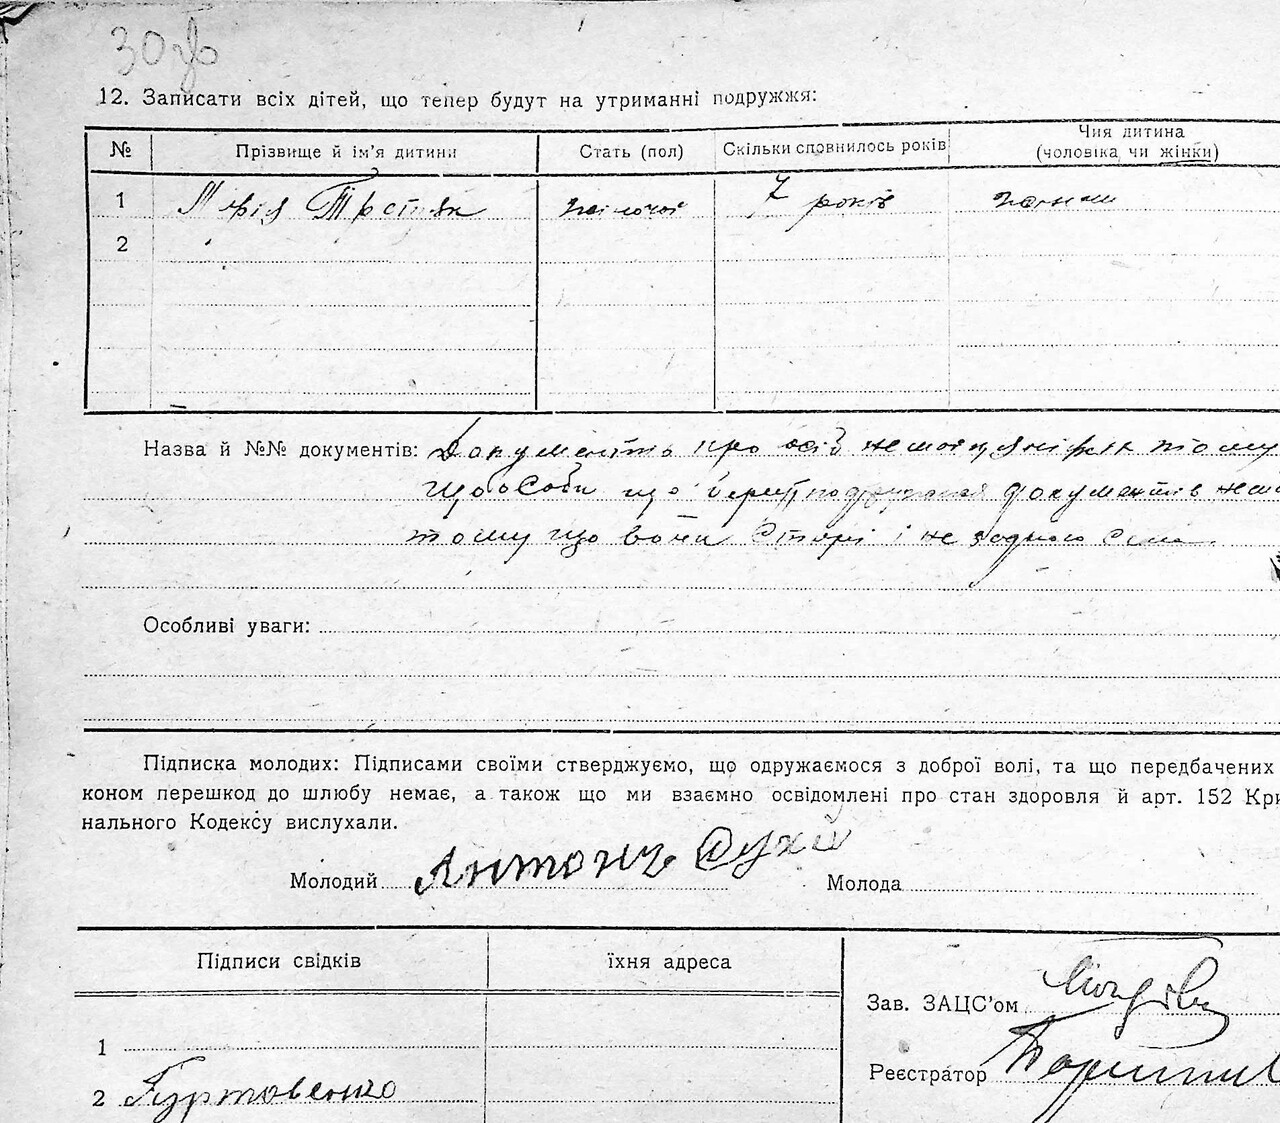 30 зв
12. Записати всіх дітей, що тепер будут на утриманні подружжя:
№ Прізвище й ім'я дитини Стать (пол) Скільки сповнилось років Чия дитина
(чоловіка чи жінки)
1 Марія жіночої 7 років жінки
2
Назва й №№ документів: Документь про осіб тому
що особи що документів
тому що вони старі і не з одного села
Особливі уваги:
Підписка молодих: Підписами своїми стверджуємо, що одружаємося з доброї волі, та що передбачених
коном перешкод до шлюбу немає, а також що ми взаємно освідомлені про стан здоровля й арт. 152 Кри
нального Кодексу вислухали.
Молодий Антонь Сухий Молода
Підписи свідків їхня адреса
Зав. ЗАЦС'ом
1
Реєстратор
2 Гуртовенко